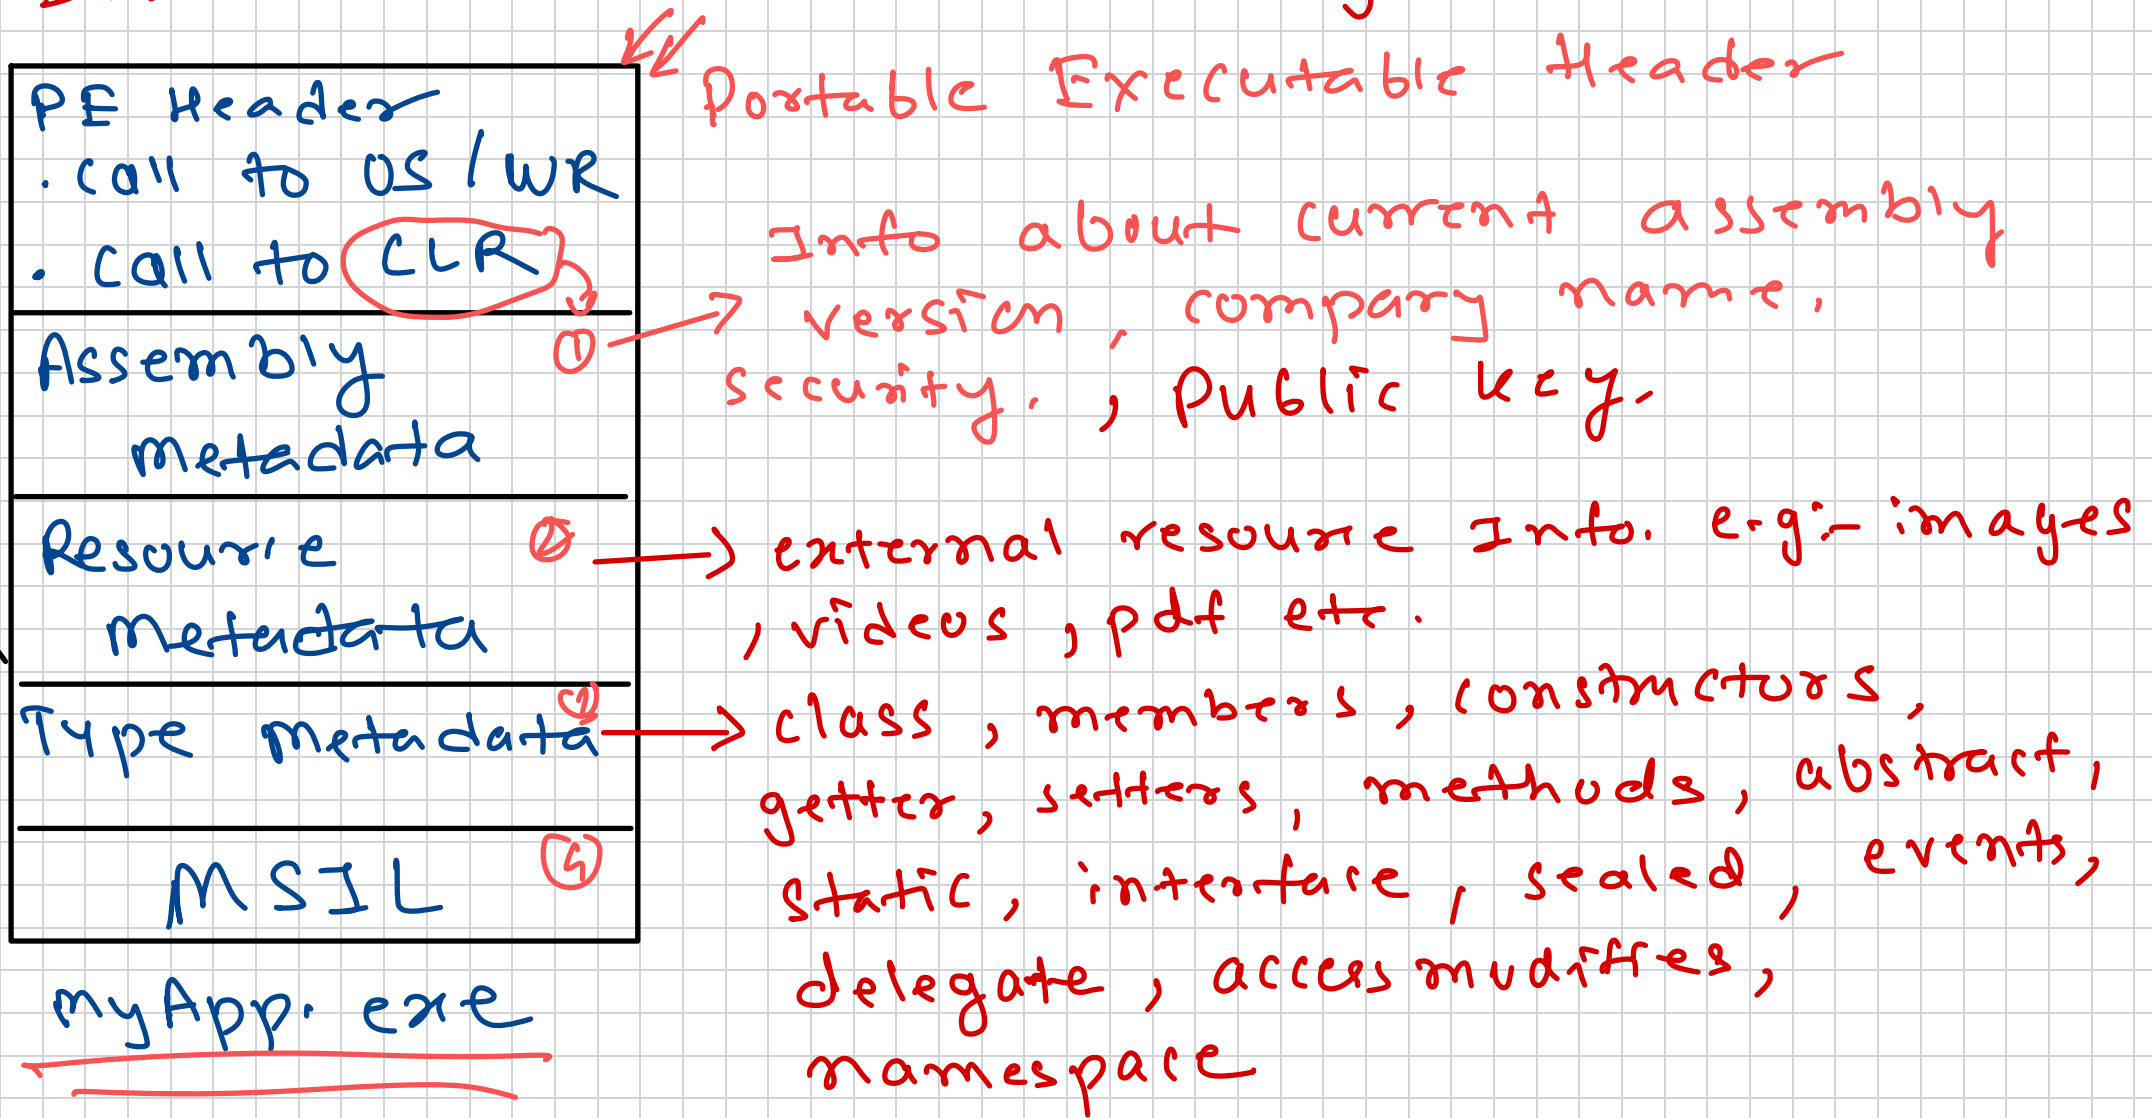 PE Header
. call to OS / WR
. call to CLR
Assembly
metadata
①
Resource
metadata
②
Type metadata
③
MSIL
④
myApp. exe
Portable Executable Header
Info about current assembly
version, company name.
security. , Public key.
external resource Info. e.g:- images
, videos , pdf etc.
class , members , constructors ,
getter , setters , methods , abstract ,
static , interface , sealed , events ,
delegate , access modiffies ,
namespace